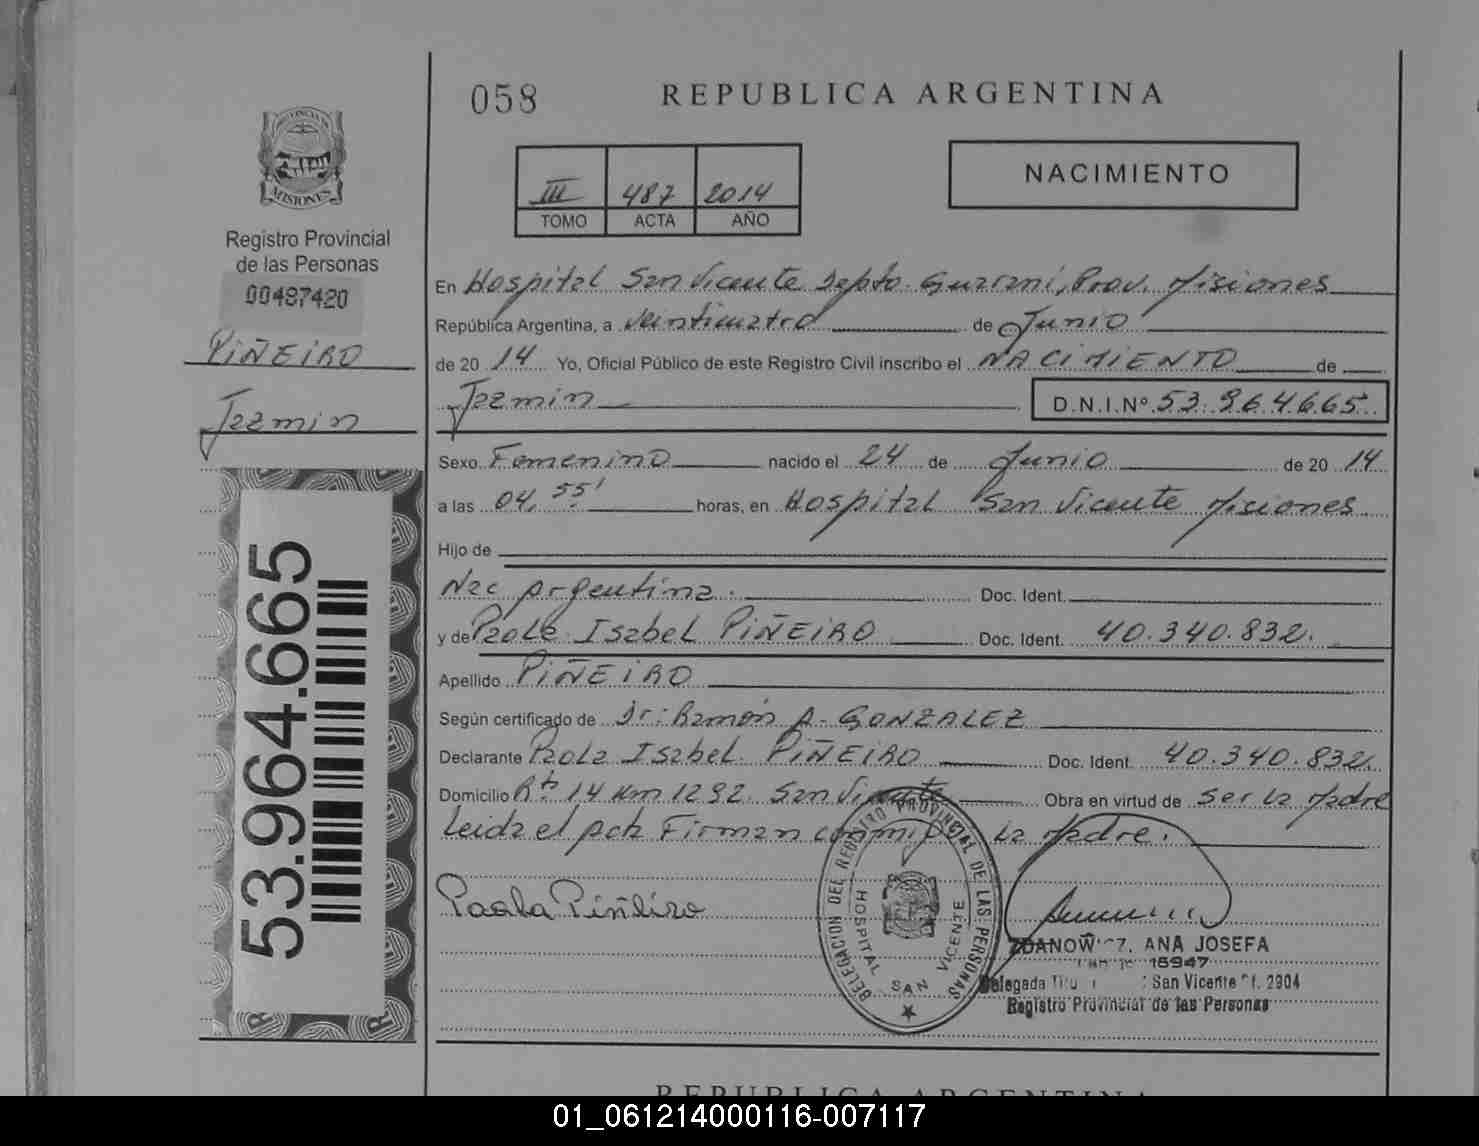 058
REPUBLICA ARGENTINA
PROVINCIA DE
MISIONES
Registro Provincial
de las Personas
00487420
PIÑEIRO
Jazmin
53.964.665
III 487 2014
TOMO ACTA AÑO
NACIMIENTO
En Hospital San Vicente Depto. Guarani, Prov. Misiones
República Argentina, a Veinticuatro de Junio
de 20 14 Yo, Oficial Público de este Registro Civil inscribo el NACIMIENTO de
Jazmin D.N.I.Nº 53.964.665
Sexo Femenino nacido el 24 de Junio de 20 14
a las 04,55' horas, en Hospital San Vicente Misiones
Hijo de
Nac Argentina. Doc. Ident.
y de Paola Isabel PIÑEIRO Doc. Ident. 40.340.832.
Apellido PIÑEIRO
Según certificado de Dr: Ramón A. GONZALEZ
Declarante Paola Isabel PIÑEIRO Doc. Ident. 40.340.832.
Domicilio Rta 14 Km 1292. San Vicente Obra en virtud de ser la Madre
Leida el Acta Firman conmigo La Madre.
Paola Piñeiro
DELEGACION DEL REGISTRO PROVINCIAL DE LAS PERSONAS
HOSPITAL SAN VICENTE
ZDANOWICZ, ANA JOSEFA
15947
Delegada San Vicente Of. 2904
Registro Provincial de las Personas
REPUBLICA ARGENTINA
01_061214000116-007117